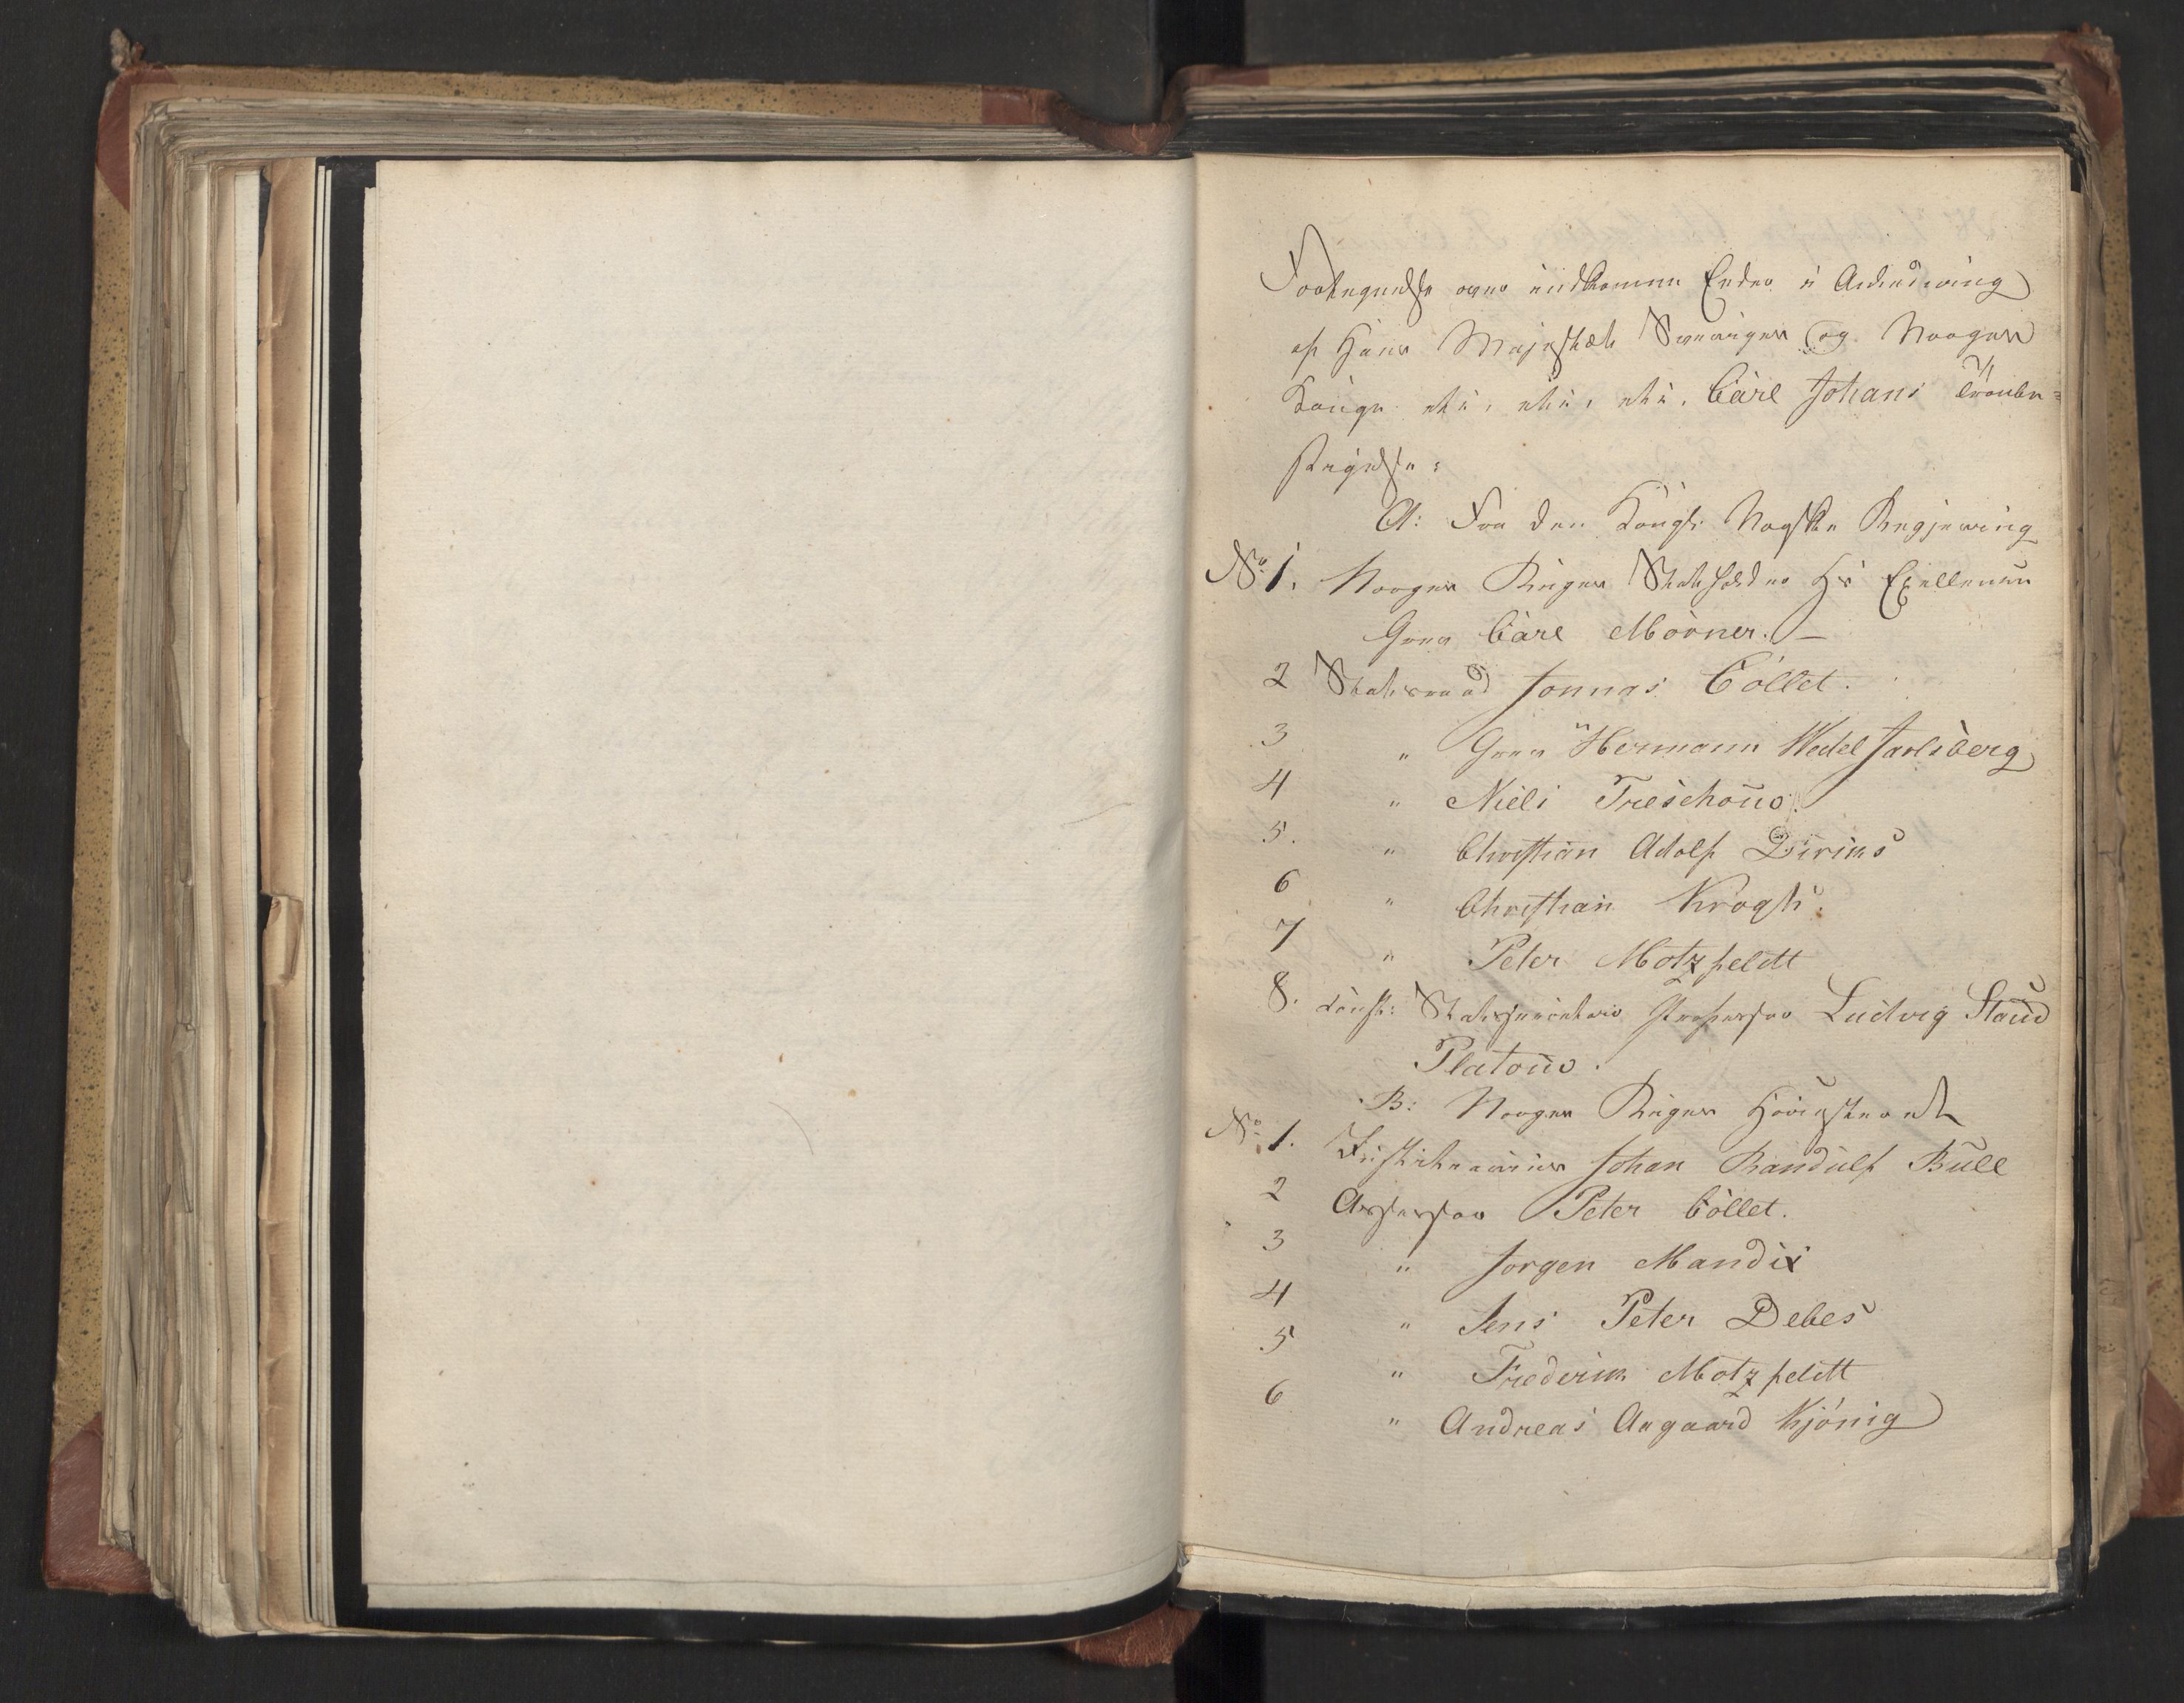 Fortegnelse over indkomne Eeder i Anledning
af Hans Majestæt Sverriges og Norges
Konge etc, etc, etc. Carl Johans Tronbe-
stigelse:
A: Fra den Kongl: Norske Regjering
No 1. Norges Riges Statholder Hs Exellence
Grev Carl Mörner. —
2 Statsraad Jonas Collet.
3 " Grev Hermann Wedel Jarlsberg
4 " Niels Treschow.
5. " Christian Adolf Diriks
6 " Christian Krogh.
7 " Peter Motzfeldt
8. Const: Statssecretair Professor Ludvig Stoud
Platou.
B: Norges Riges Høiesteret
No 1. Justitiarius Johan Randulf Bull
2 Assessor Peter Collet.
3 " Jørgen Mandix
4 " Jens Peter Debes
5 " Frederik Motzfeldt
6 " Andreas Aagaard Kjönig